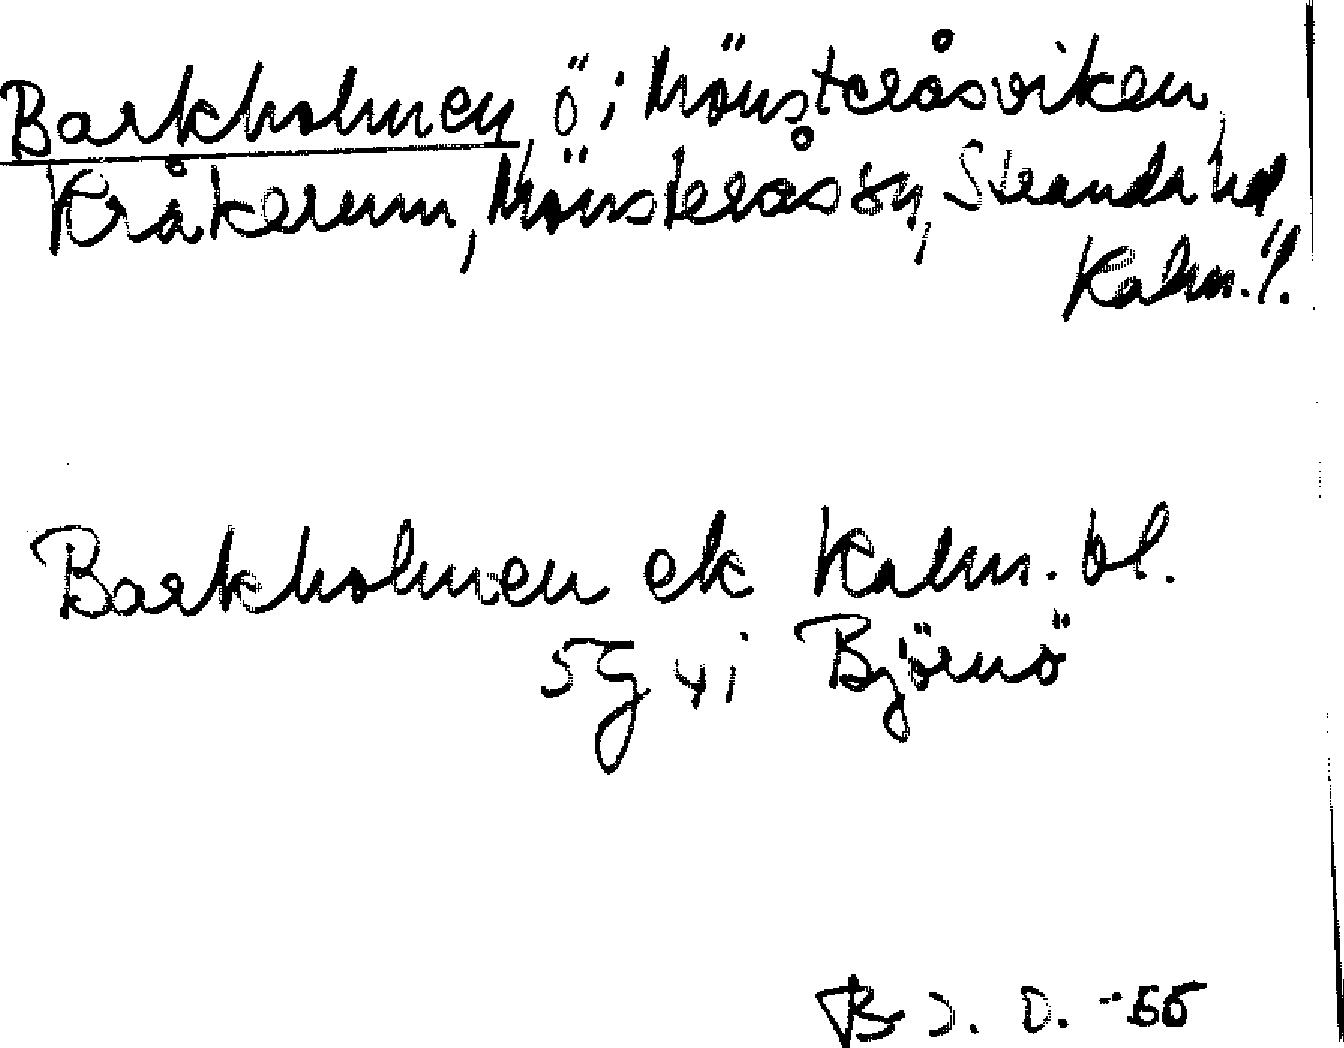 Barkholmen, ö i Mönsteråsviken,
Kråkerum, Mönsterås sn, Stranda hd,
Kalm. l.
Barkholmen ek Kalm. bl.
5G 4i Björnö
B J. D. -55